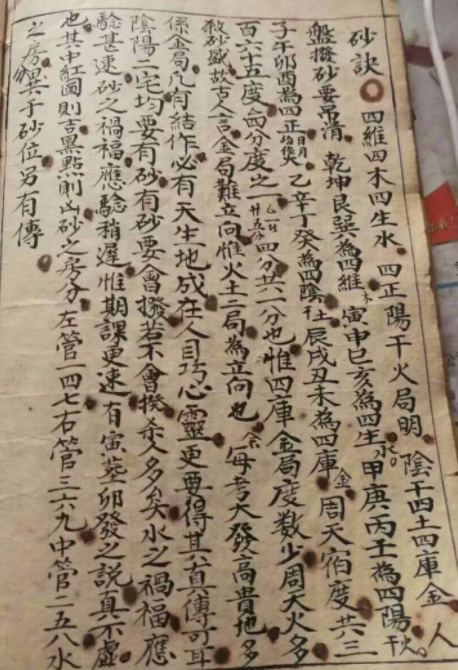 砂訣 四維四木四生水 四正陽干火局明 陰干四土四庫金 人
盤撥砂要吊清 乾坤艮巽為四維木 寅申巳亥為四生水 甲庚丙壬為四陽火
子午卯酉為四正日月均集 乙辛丁癸為四陰社 辰戌丑未為四庫金 周天宿度共三
百六十五度 四分度之一 四分共一分也惟四庫金局度數少周天火多
殺砂盛故古人言金局難立向惟火土二局為立向也 每考大發高貴地多
係金局凡有結作必有天生地成在人目巧心靈更要得其真傳可耳
陰陽二宅均要有砂有砂要會撥若不會撥殺人多矣水之禍福應
驗甚速砂之禍福應驗稍遲惟期課更速有寅葬卯發之說真不虛
也其中紅圈則吉黑點則凶砂之房分左管一四七右管三六九中管二五八水
之房異于砂位另有傳